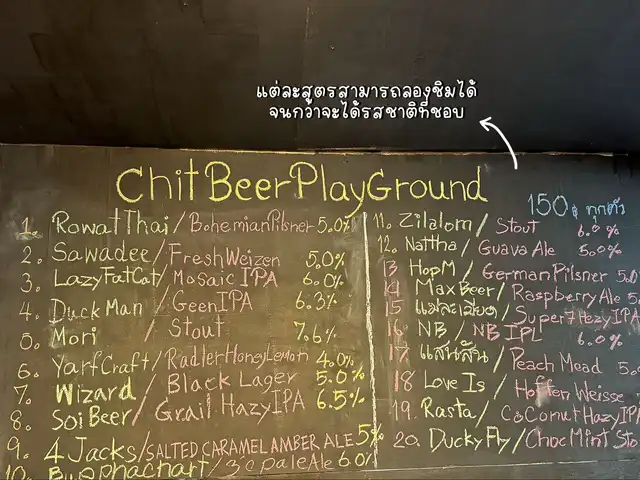 แต่ละสูตรสามารถลองชิมได้
จนกว่าจะได้รสชาติที่ชอบ
ChitBeerPlayGround
150฿ ทุกตัว
1. RowatThai/BohemianPilsner 5.0%
2. Sawadee/FreshWeizen 5.0%
3. LazyFatCat/Mosaic IPA 6.0%
4. DuckMan/GeenIPA 6.3%
5. Mori/Stout 7.6%
6. YarfCraft/RadlerHoneyLemon 4.0%
7. Wizard/Black Lager 5.0%
8. Soi Beer/Grail HazyIPA 6.5%
9. 4 Jacks/SALTED CARAMEL AMBER ALE 5%
10. Pale Ale 6.0%
11. Zilalom/Stout 6.0%
12. Nattha/Guava Ale 5.0%
13 HopM/GermanPilsner 5.0
14 MaxBeer/Raspberry Ale 5
15 แม่ละเอียด/Super7HazyIPA
16 NB/NB IPL 6.0%
17 แสนสัน/Peach Mead 5.0
18 Love Is/Hoffen Weisse
19. Rasta/CoConut HazyIPA
20. DuckyFly/Choc Mint Sto